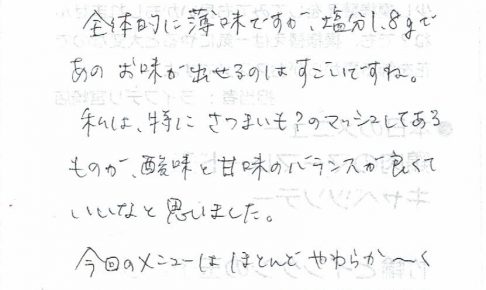 全体的に薄味ですが、塩分1.8gで
あの お味が出せるのはすごいですね。
私は、特に さつまいも?のマッシュしてある
ものが、酸味と甘味のバランスが良くて
いいなと思いました。
今回のメニューは ほとんど やわらか〜く